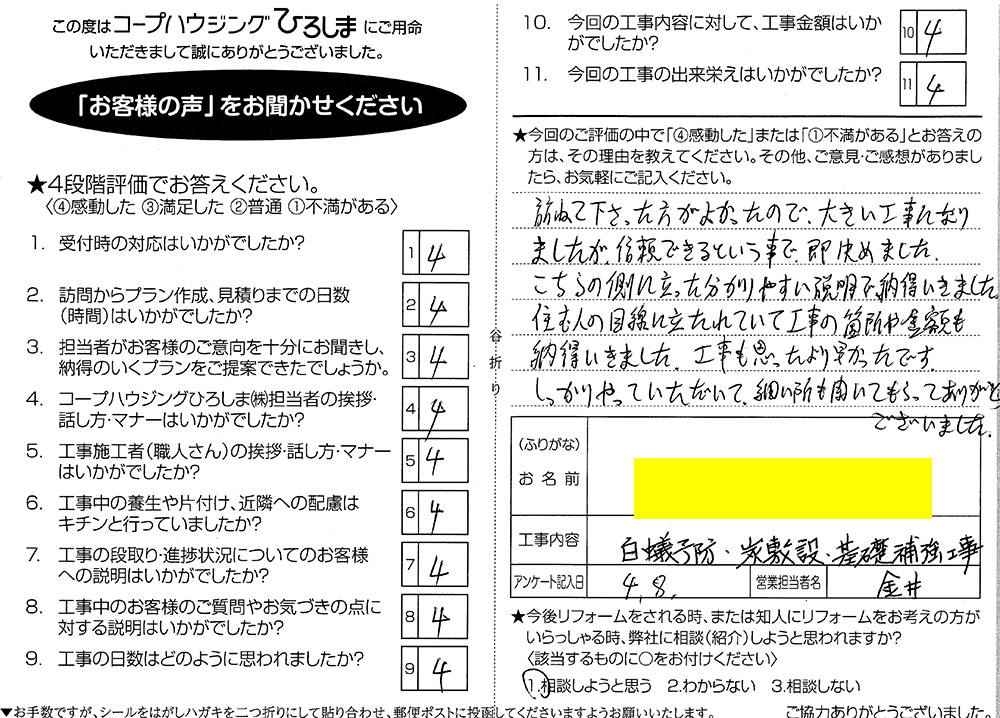 この度はコープハウジングひろしまにご用命
いただきまして誠にありがとうございました。
「お客様の声」をお聞かせください
★4段階評価でお答えください。
〈④感動した ③満足した ②普通 ①不満がある〉
1. 受付時の対応はいかがでしたか?
1 4
2. 訪問からプラン作成、見積りまでの日数
(時間)はいかがでしたか?
2 4
3. 担当者がお客様のご意向を十分にお聞きし、
納得のいくプランをご提案できたでしょうか。
3 4
4. コープハウジングひろしま㈱担当者の挨拶・
話し方・マナーはいかがでしたか?
4 4
5. 工事施工者(職人さん)の挨拶・話し方・マナー
はいかがでしたか?
5 4
6. 工事中の養生や片付け、近隣への配慮は
キチンと行っていましたか?
6 4
7. 工事の段取り・進捗状況についてのお客様
への説明はいかがでしたか?
7 4
8. 工事中のお客様のご質問やお気づきの点に
対する説明はいかがでしたか?
8 4
9. 工事の日数はどのように思われましたか?
9 4
▼お手数ですが、シールをはがしハガキを二つ折りにして貼り合わせ、郵便ポストに投函してくださいますようお願いいたします。
谷折り
10. 今回の工事内容に対して、工事金額はいか
がでしたか?
10 4
11. 今回の工事の出来栄えはいかがでしたか?
11 4
★今回のご評価の中で「④感動した」または「①不満がある」とお答えの
方は、その理由を教えてください。その他、ご意見・ご感想がありまし
たら、お気軽にご記入ください。
訪ねて下さった方がよかったので、大きい工事になり
ましたが、信頼できるという事で、即決めました。
こちらの側に立った分かりやすい説明で、納得いきました
住む人の目線に立たれていて工事の箇所や金額も
納得いきました。工事も思ったより早かったです。
しっかりやっていただいて、細い所も聞いてもらってありがと
ございました。
(ふりがな)
お名前
工事内容 白蟻予防・炭敷設・基礎補強工事
アンケート記入日 4.8. 営業担当者名 金井
★今後リフォームをされる時、または知人にリフォームをお考えの方が
いらっしゃる時、弊社に相談(紹介)しようと思われますか?
〈該当するものに○をお付けください〉
1.相談しようと思う 2.わからない 3.相談しない
ご協力ありがとうございました。